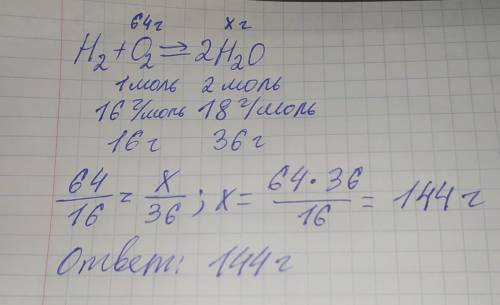 64г xг
H₂+O₂=2H₂O
1моль 2моль
16г/моль 18г/моль
16г 36г
64/16 = x/36; x = 64·36/16 = 144г
Ответ: 144г